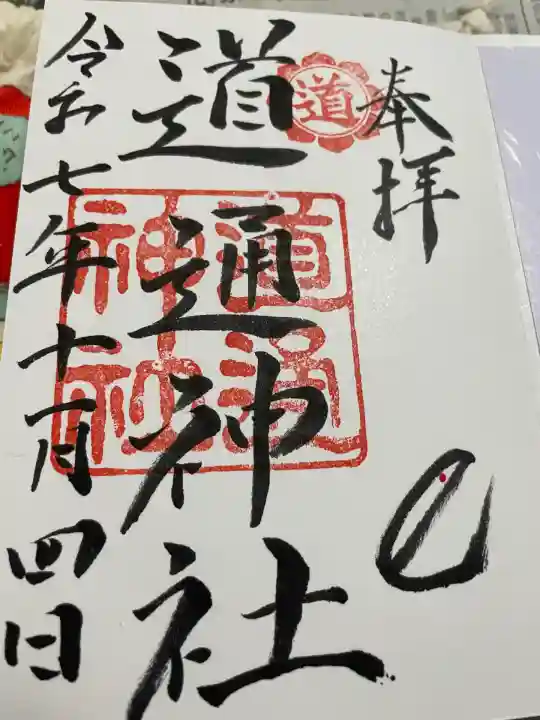 奉拝
道
道通神社
道通神社
巳
令和七年十一月四日